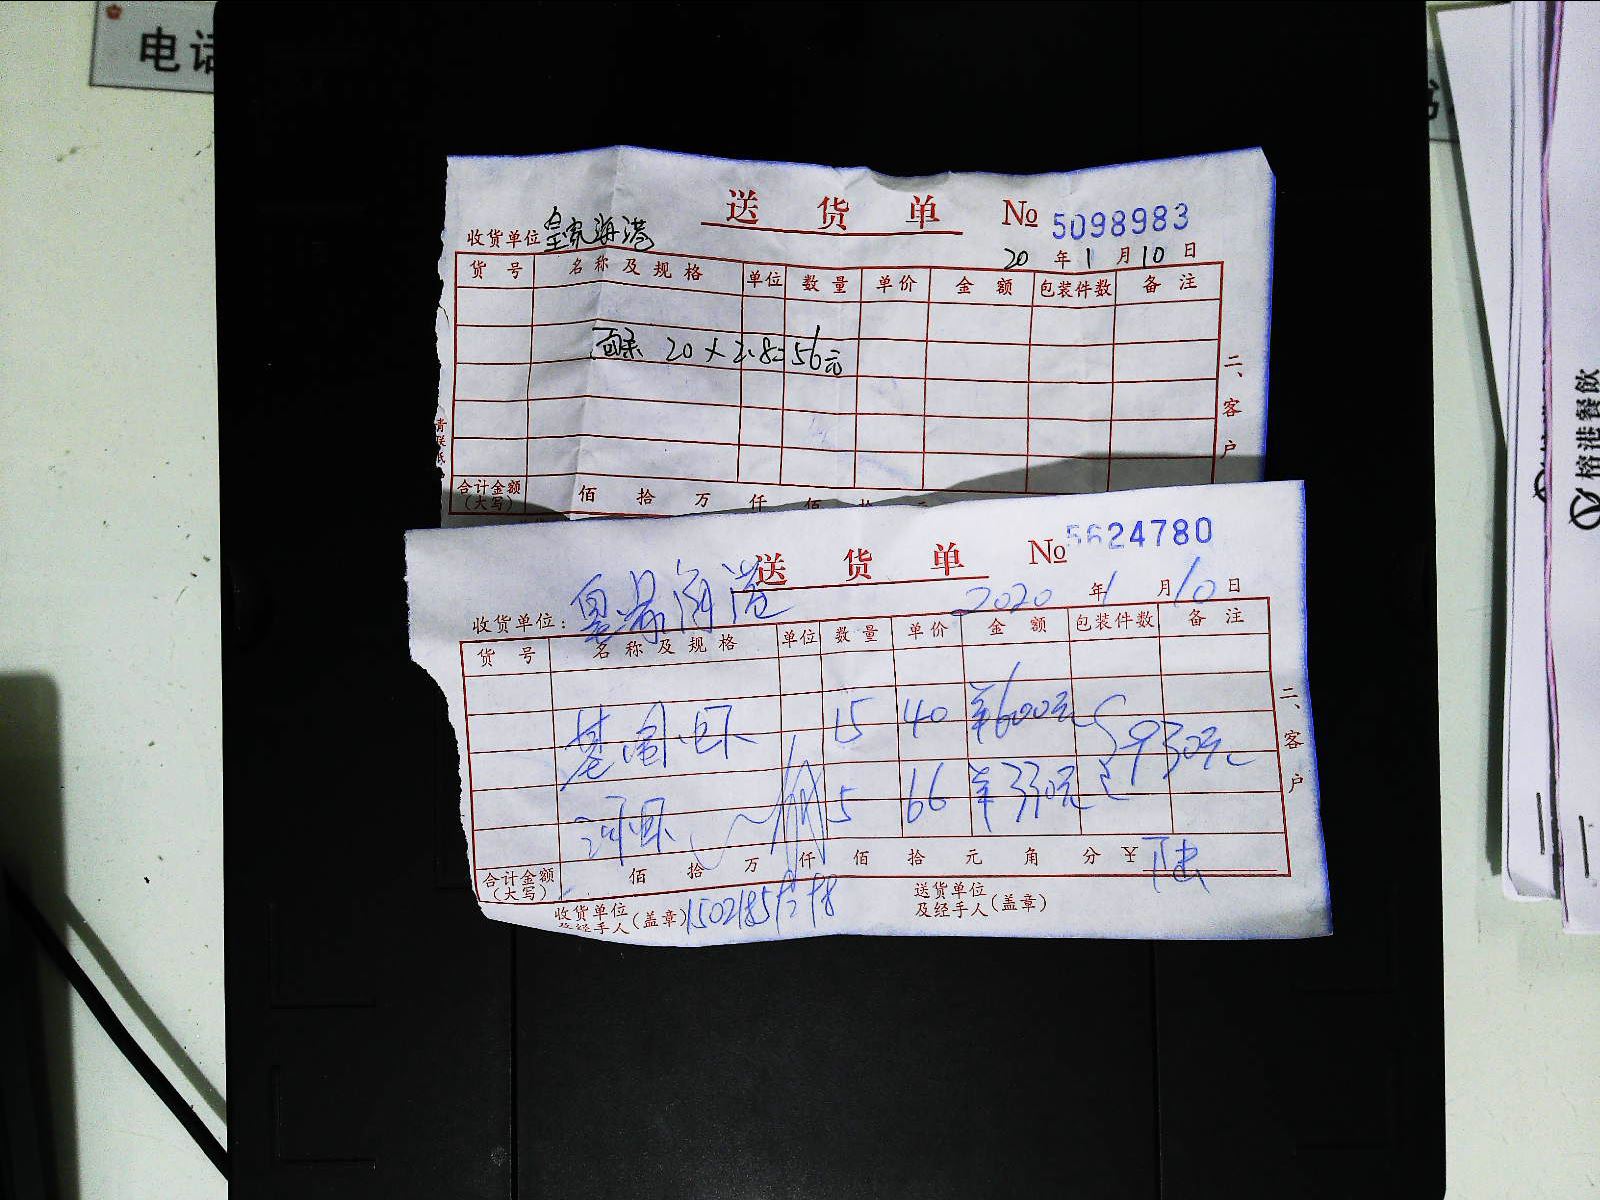 电话
送 货 单 № 5098983
收货单位 皇家海港
20 年 1 月 10 日
货 号 名称及规格 单位 数量 单价 金 额 包装件数 备 注
20 × 2.8=56元
二、客户
合计金额（大写） 佰 拾 万 仟 佰
送 货 单 № 5624780
收货单位： 皇家海港
2020 年 1 月 10 日
货 号 名称及规格 单位 数量 单价 金 额 包装件数 备 注
基围虾 15 40 ¥600元
930元
河虾 5 66 ¥330元
二、客户
合计金额（大写） 佰 拾 万 仟 佰 拾 元 角 分 ¥
收货单位及经手人（盖章）
送货单位及经手人（盖章）
榕港餐飲